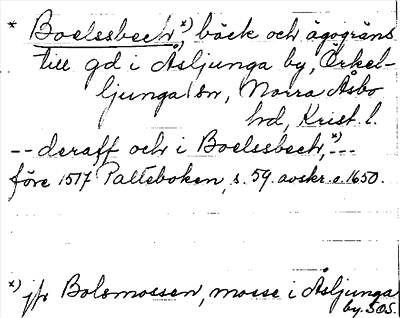 * Boelssbech, *) bäck och ägogräns
till gd i Åsljunga by, Örkel-
ljunga sn, Norra Åsbo
hd, Krist. l.
-- deraff och i Boelssbech, *) --
före 1517 Palteboken, s. 59. avskr. o. 1650.
*) jfr Bolsmossen, mosse i Åsljunga
by. SOS.